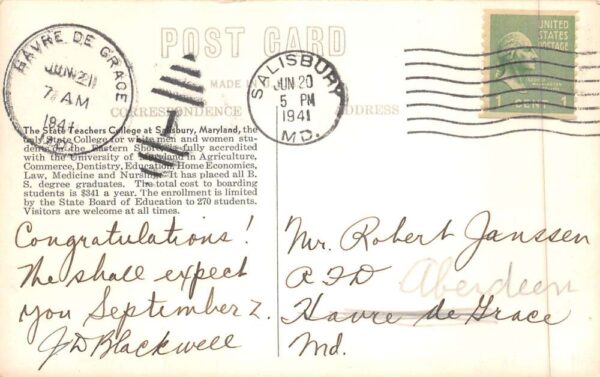 POST CARD
HAVRE DE GRACE
JUN 21
7 AM
1941
SALISBURY
JUN 20
5 PM
1941
MD.
UNITED
STATES
POSTAGE
1 CENT 1
MADE
CORRESPONDENCE
ADDRESS
The State Teachers College at Salisbury, Maryland, the
only State College for white men and women stu-
dents on the Eastern Shore, is fully accredited
with the University of Maryland in Agriculture,
Commerce, Dentistry, Education, Home Economics,
Law, Medicine and Nursing. It has placed all B.
S. degree graduates. The total cost to boarding
students is $341 a year. The enrollment is limited
by the State Board of Education to 270 students.
Visitors are welcome at all times.
Congratulations!
We shall expect
you September 2.
J D Blackwell
Mr. Robert Janssen
R F D
Aberdeen
Havre de Grace
Md.